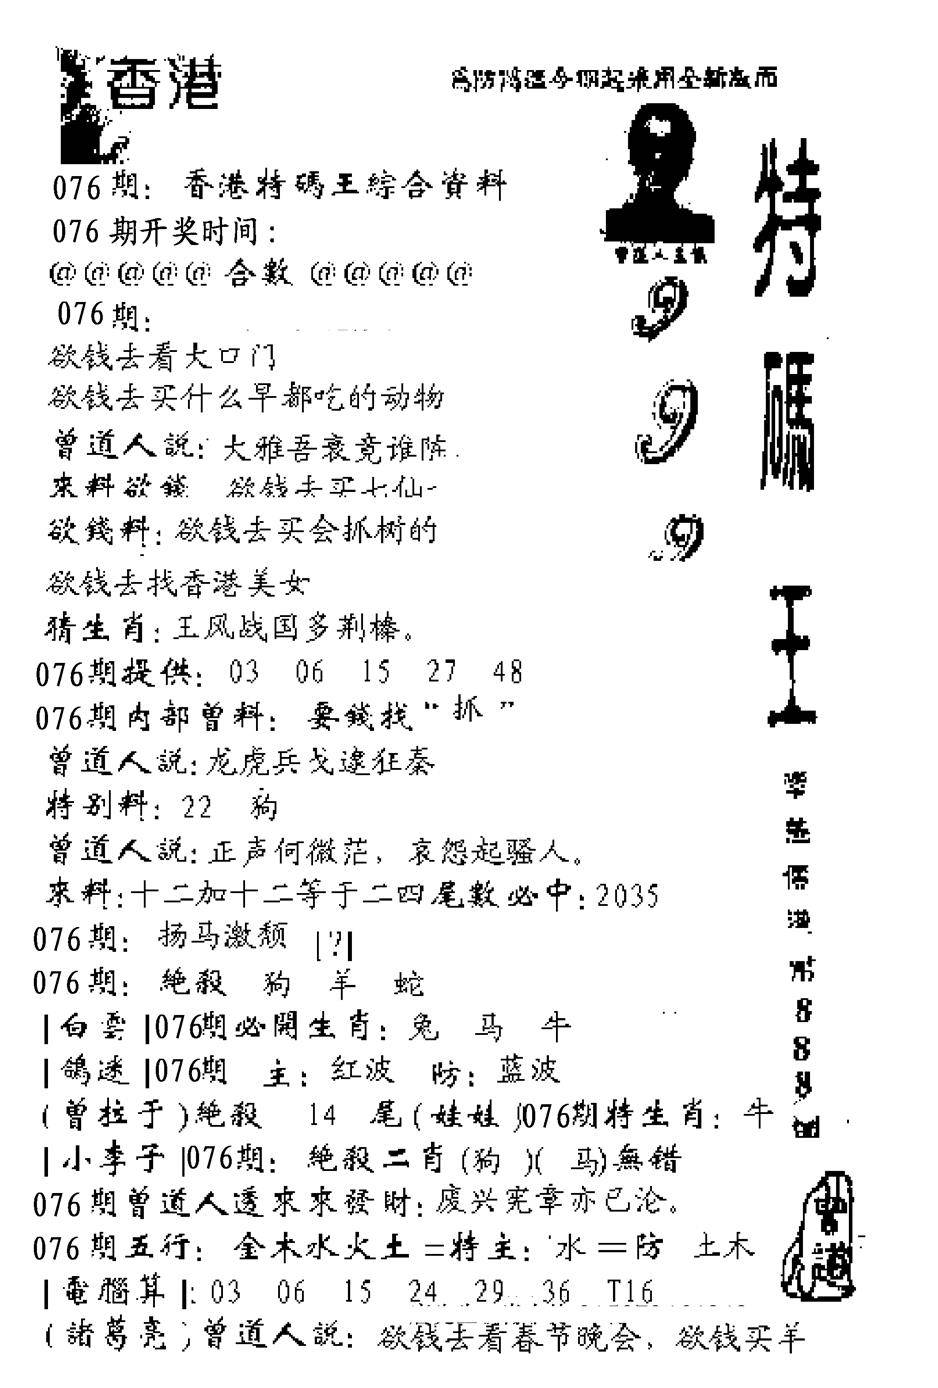 香港
為防濫今期起采用全新版面
076期：香港特碼王綜合資料
076期开奖时间：
@@@@@合數@@@@@
076期：
欲钱去看大口门
欲钱去买什么早都吃的动物
曾道人説：大雅吾衰竟谁陈.
來料欲錢 欲钱去买七仙
欲錢料：欲钱去买会抓树的
欲钱去找香港美女
猜生肖：王风战国多荆榛。
076期提供：03 06 15 27 48
076期内部曾料：要錢找“抓”
曾道人説：龙虎兵戈逮狂秦
特别料：22 狗
曾道人説：正声何微茫，哀怨起骚人。
來料：十二加十二等于二四尾數必中：2035
076期：扬马激颓 [?]
076期：絶殺 狗 羊 蛇
|白雲|076期必開生肖：兔 马 牛
|鴿迷|076期 主：红波 防：蓝波
(曾拉于)絶殺 14 尾(娃娃)076期特生肖：牛
|小李子|076期：絶殺二肖(狗 )( 马)無错
076期曾道人透來來發財：废兴宪章亦已沦。
076期五行：金木水火土=特主：水=防 土木
|電腦算|：03 06 15 24 29 36 T16
(諸葛亮)曾道人説：欲钱去看春节晚会，欲钱买羊
曾道人主
9
9
9
特
碼
王
港
8
8
8
曾道